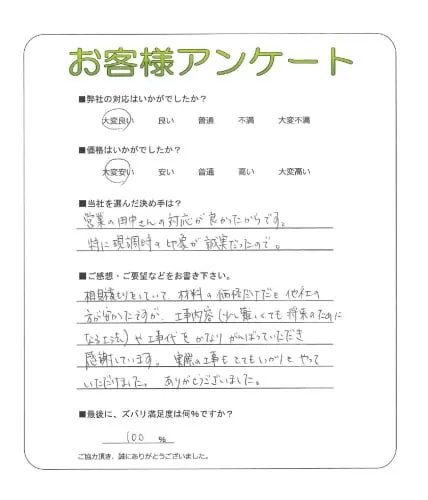 お客様アンケート
■弊社の対応はいかがでしたか?
大変良い 良い 普通 不満 大変不満
■価格はいかがでしたか?
大変安い 安い 普通 高い 大変高い
■当社を選んだ決め手は?
営業の田中さんの対応が良かったからです。
特に現調時の印象が誠実だったので。
■ご感想・ご要望などをお書き下さい。
相見積りをしていて、材料の価格だけだと他社の
方が安かったですが、工事内容(少し難しくても将来のために
なる工法)や工事代をかなりがんばっていただき
感謝しています。実際の工事もとてもしっかりとやって
いただけました。ありがとうございました。
■最後に、ズバリ満足度は何%ですか?
100 %
ご協力頂き、誠にありがとうございました。